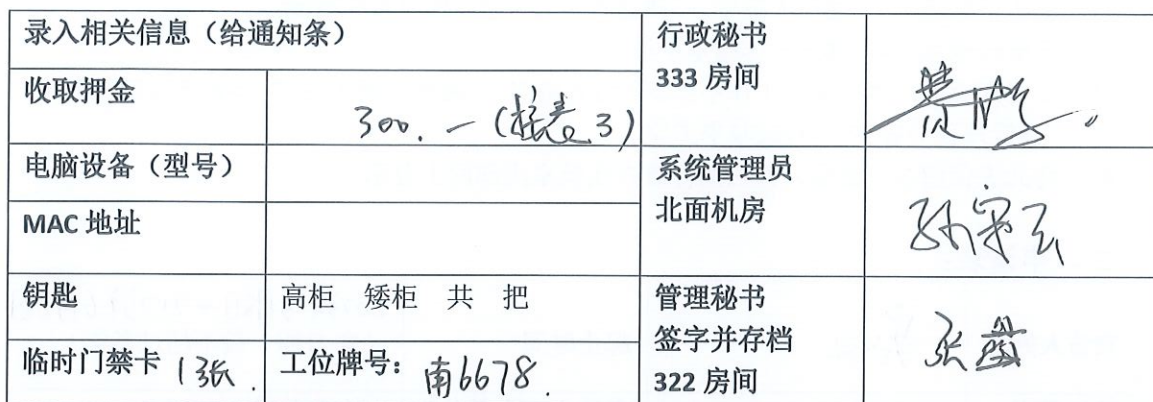 录入相关信息（给通知条）
行政秘书
333 房间
收取押金
300. — (接表3)
电脑设备（型号）
系统管理员
北面机房
MAC 地址
钥匙
高柜 矮柜 共 把
管理秘书
签字并存档
322 房间
临时门禁卡 1张.
工位牌号： 南6678.